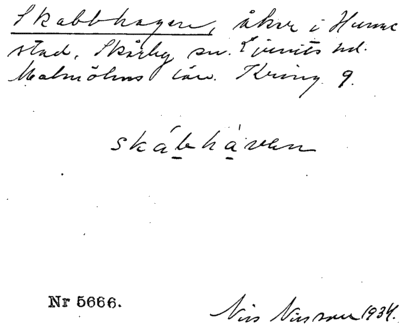 Skabbhagen, åker i Hunne
stad, Skårby sn. Ljunits hd.
Malmöhus län. Kring 9.
skábháven
Nr 5666.
Nils Nilsson 1934.